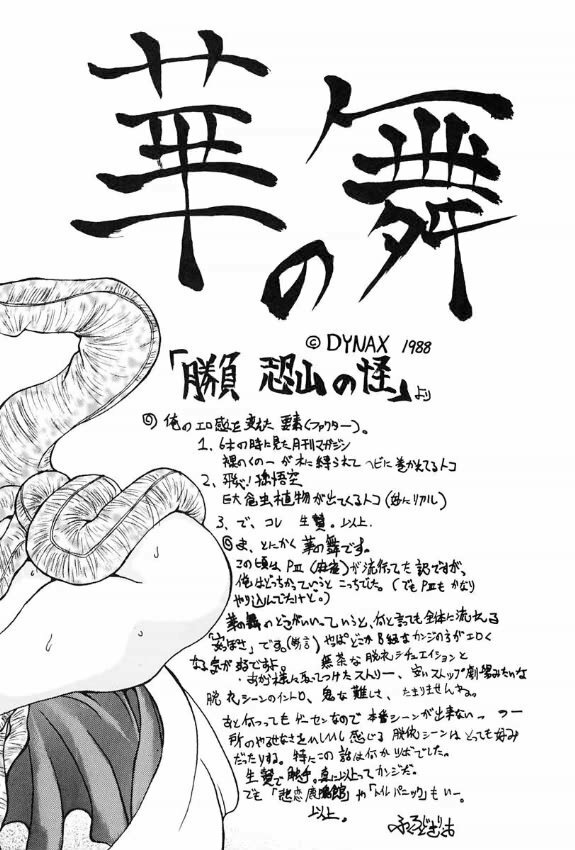 華の舞
© DYNAX 1988
「勝負 恐山の怪」より
◎ 俺のエロ感を変えた要素(ファクター)。
1、6才の時に見た月刊マガジン
裸のくの一が木に縛られてヘビに巻かれてるトコ
2、飛べ!孫悟空
巨大食虫植物が出てくるトコ(妙にリアル)
3、で、コレ 生贄。以上.
◎ま、とにかく華の舞です。
この頃はPⅢ(麻雀)が流行てた訳ですが、
俺はどっちかっていうとこっちでした。(でもPⅢもかなり
やり込んでたけど。)
華の舞のどこがいいっていうと、何と言っても全体に流れる
です。(断言) やっぱどこかB級なカンジの方がエロく
なる気が好ですよ。 無茶な脱衣シチュエイションと
取ってつけたストーリー、安いストップ劇場みたいな
脱衣シーンのイントロ、鬼な難しさ、たまりませんなぁ。
あと何つってもゲーセンなので本番シーンが出来ないっつー
所のやるせなさをひしひし感じる脱衣シーンはとっても好み
だったりする。特にこの話は何かりばでした。
生贄で触手。真に以上ってカンジだ。
でも「悲恋 館」や「トイレパニック」もいー。
以上。